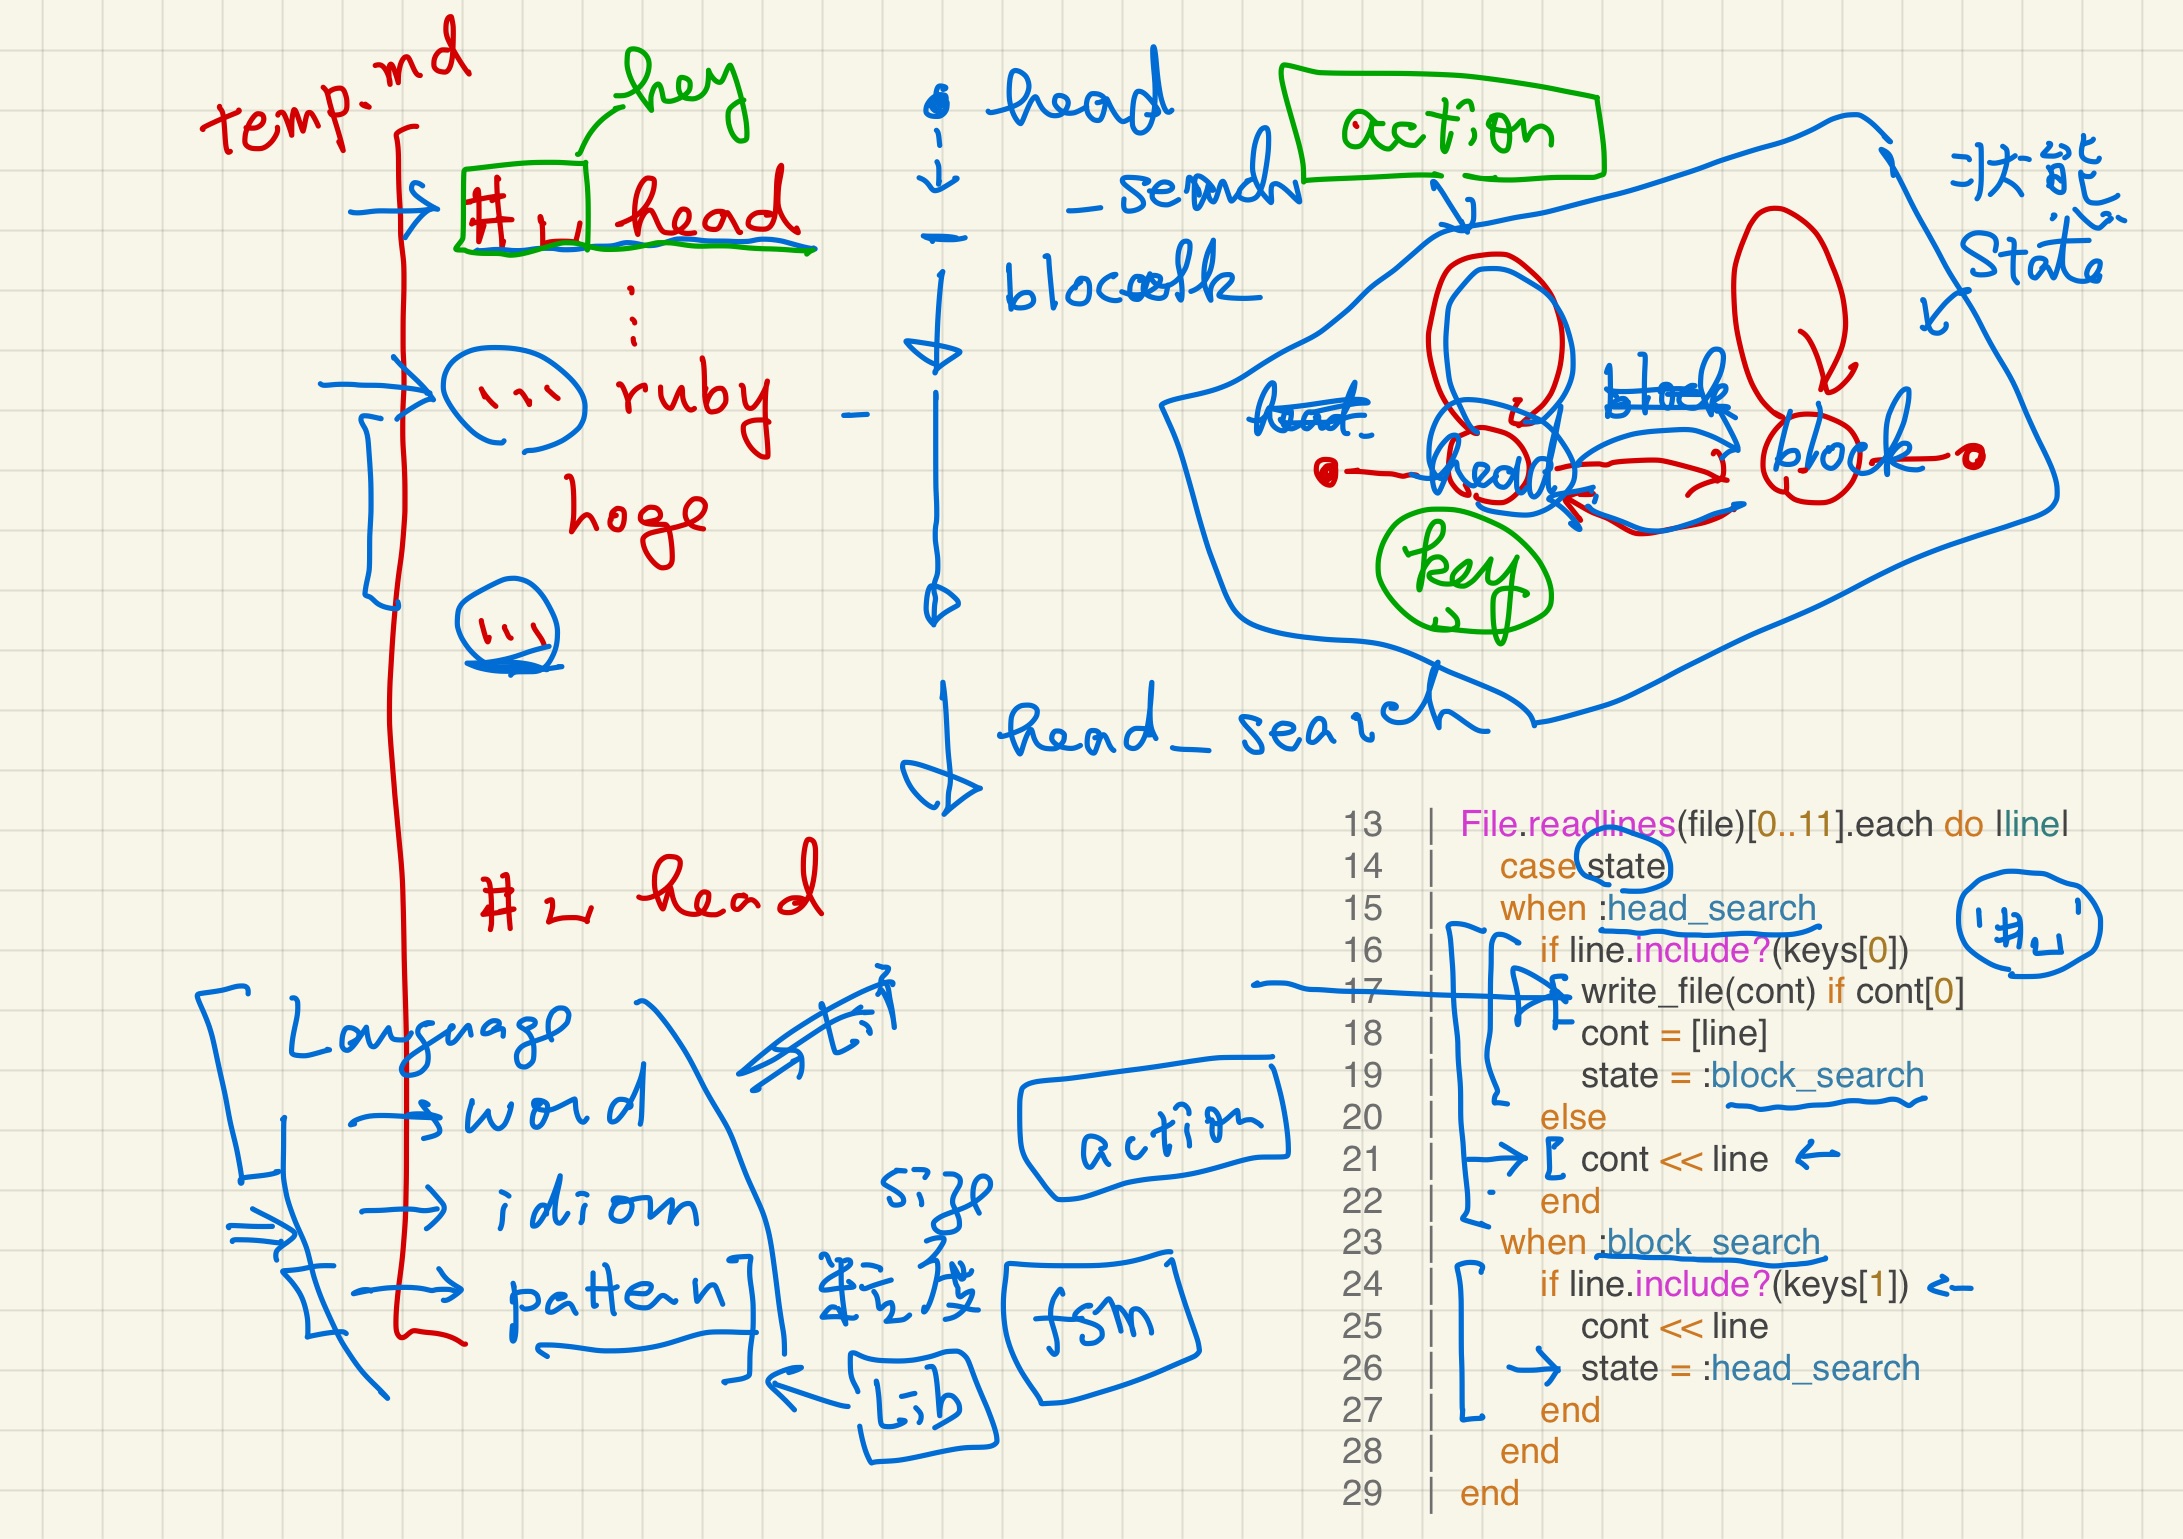 temp.md
key
# ␣ head
⋮
``` ruby
hoge
```
# ␣ head
head
block
head_search
action
状態
State
head
block
key
Language
→ word
→ idiom
→ pattern
size
action
fsm
Lib
'# ␣'
13 | File.readlines(file)[0..11].each do |line|
14 | case state
15 | when :head_search
16 | if line.include?(keys[0])
17 | write_file(cont) if cont[0]
18 | cont = [line]
19 | state = :block_search
20 | else
21 | cont << line
22 | end
23 | when :block_search
24 | if line.include?(keys[1])
25 | cont << line
26 | state = :head_search
27 | end
28 | end
29 | end